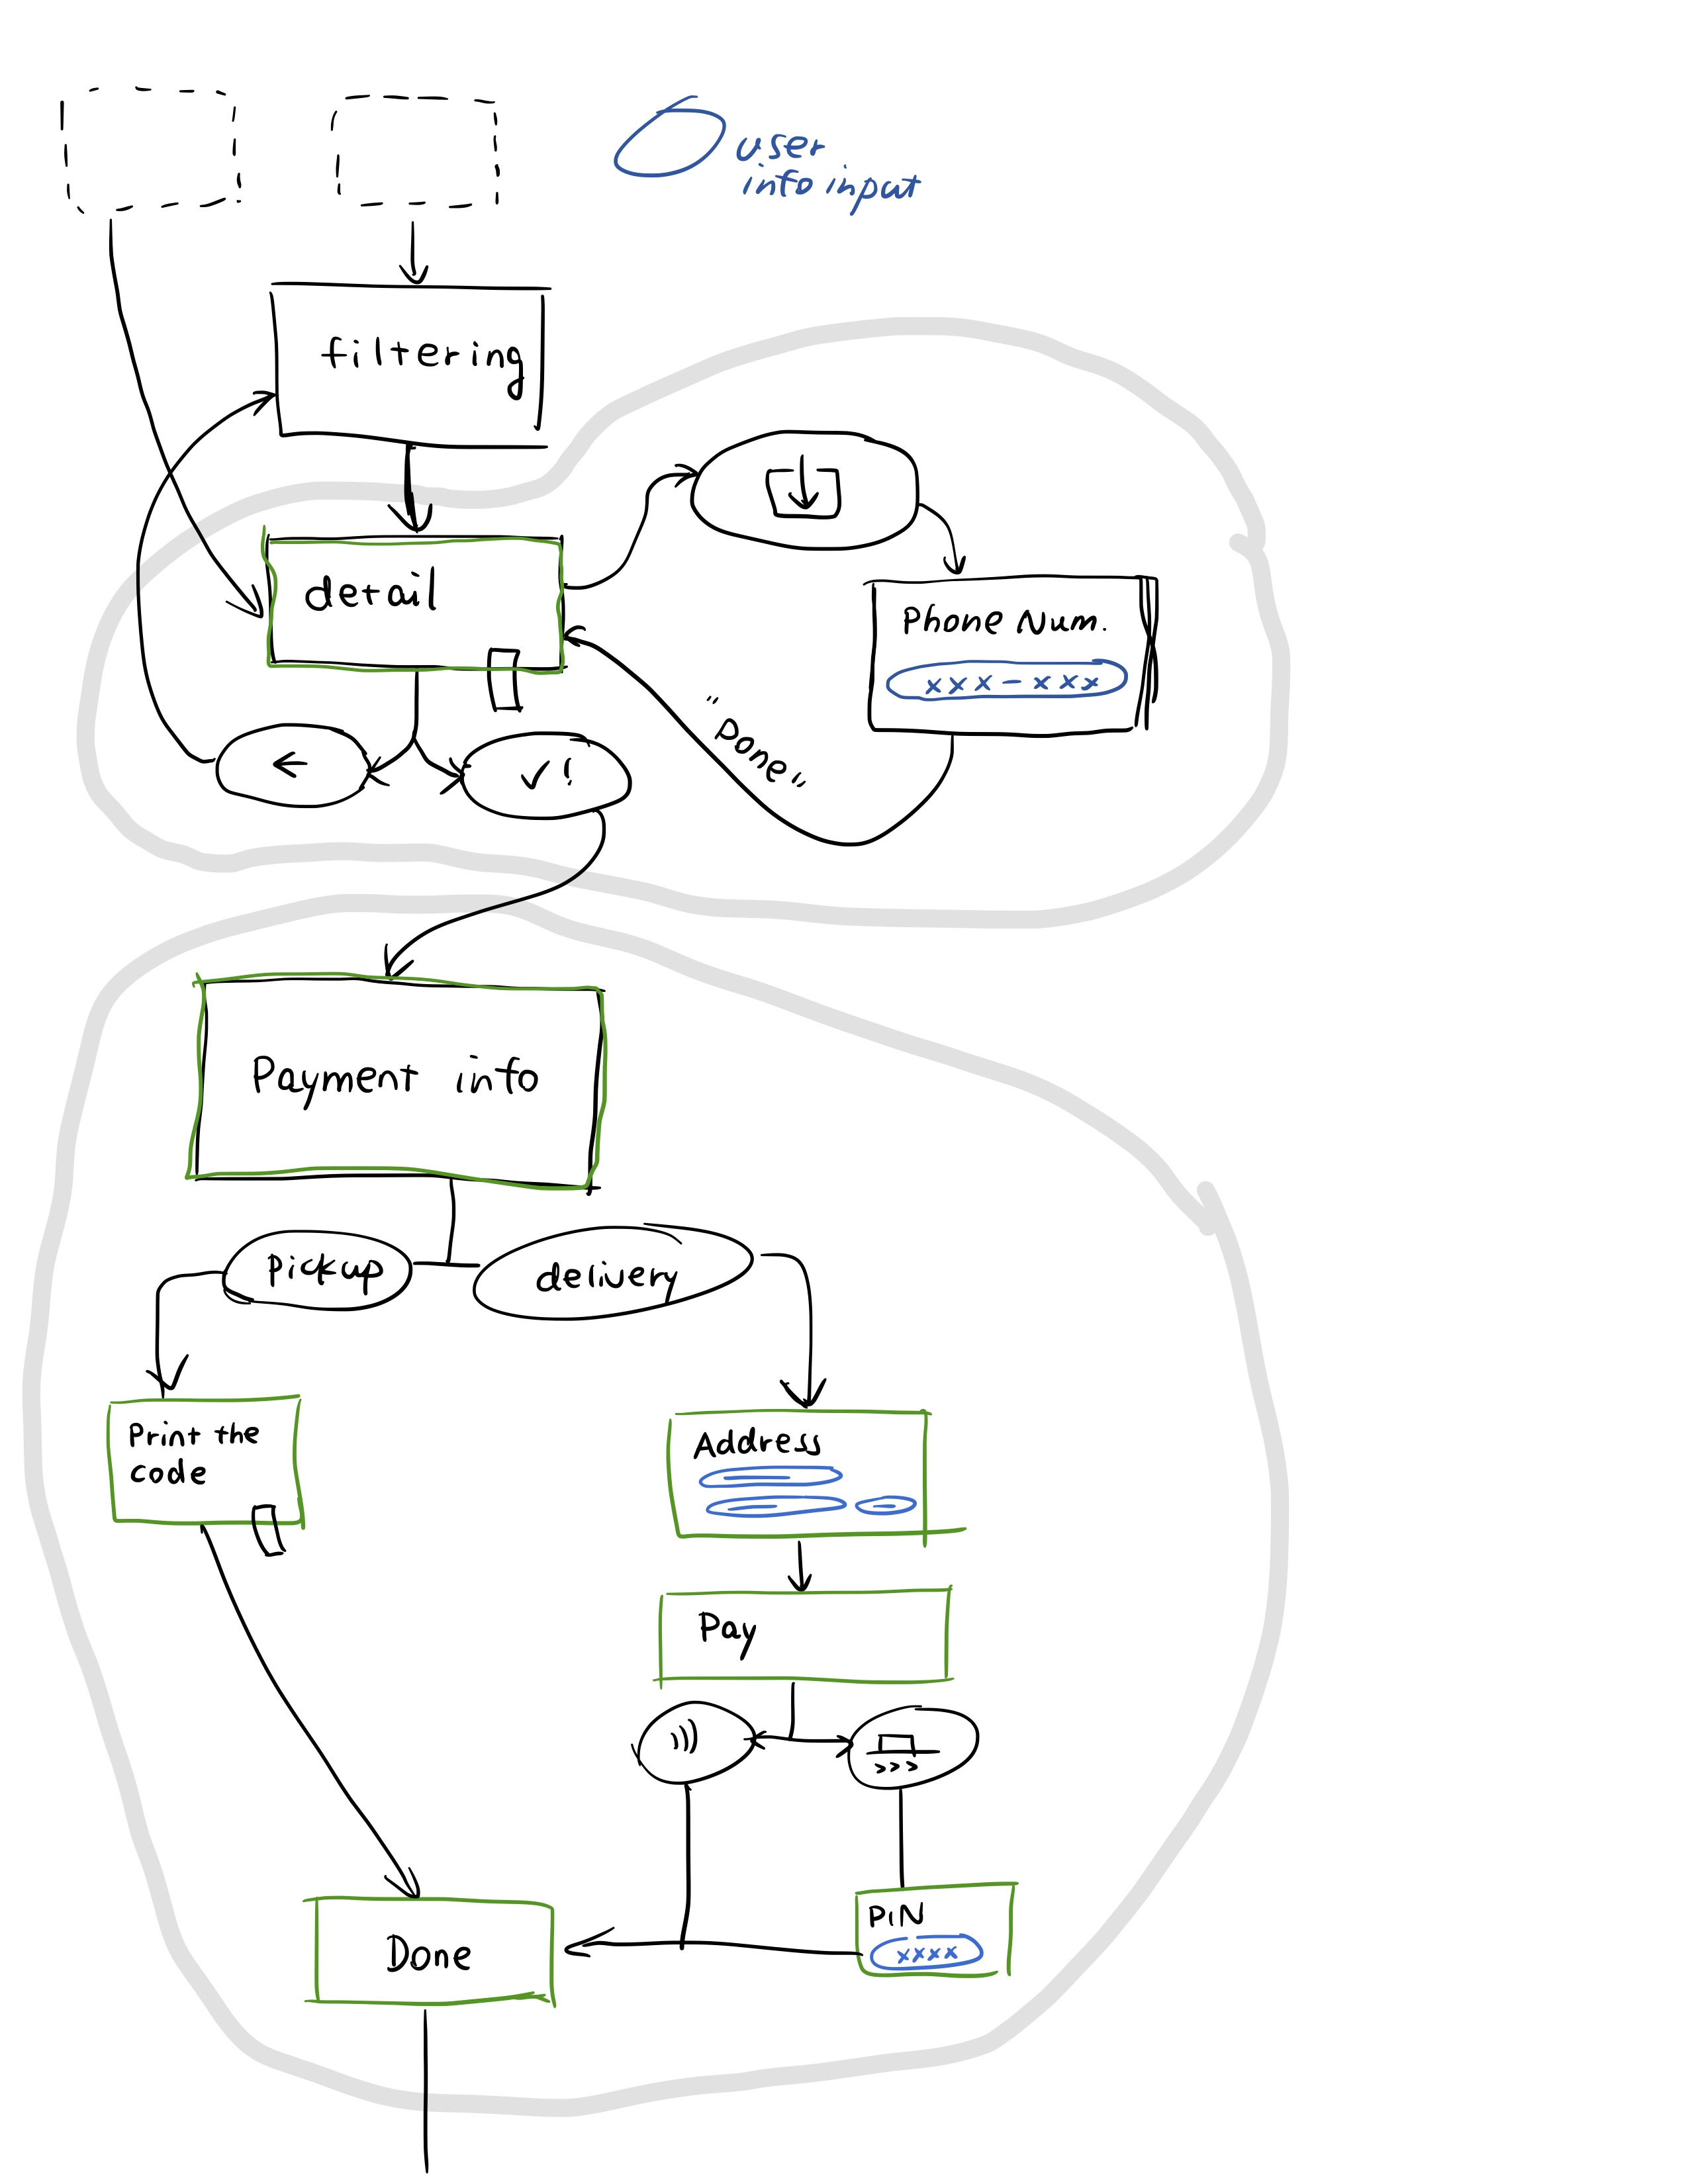 user
info input
filtering
detail
Phone Num.
xxx-xxx
"Done"
✓!
Payment info
Pickup
delivery
Print the
code
Address
Pay
>>>
PIN
xxxx
Done